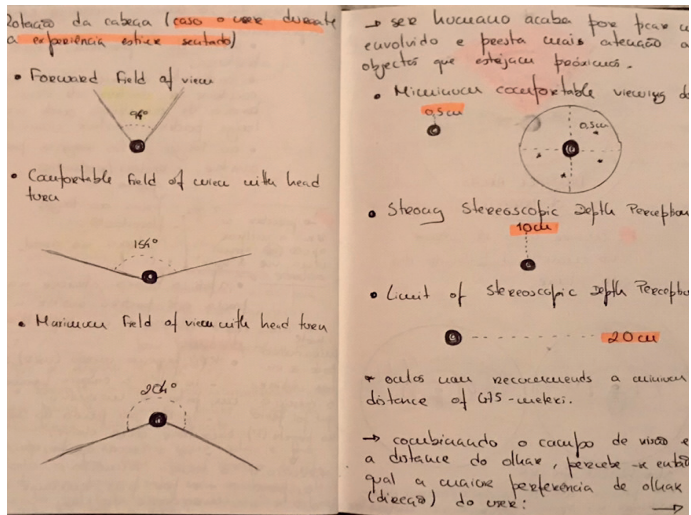 Rotação da cabeça (caso o user durante
a experiência estiver sentado)
• Forward Field of view
94°
• Comfortable Field of view with head
turn
154°
• Maximum Field of view with head turn
204°
→ ser humano acaba por ficar
envolvido e presta mais atenção a
objectos que estejam próximos.
• Minimum comfortable viewing d
0,5m
0,5m
• Strong Stereoscopic Depth Perception
10m
• Limit of Stereoscopic Depth Perception
20m
* oculos recommends a minimum
distance of 0,75-meters.
→ combinando o campo de visão e
a distance do olhar, percebe-se então
qual a maior preferência de olhar
(direcção) do user:
→